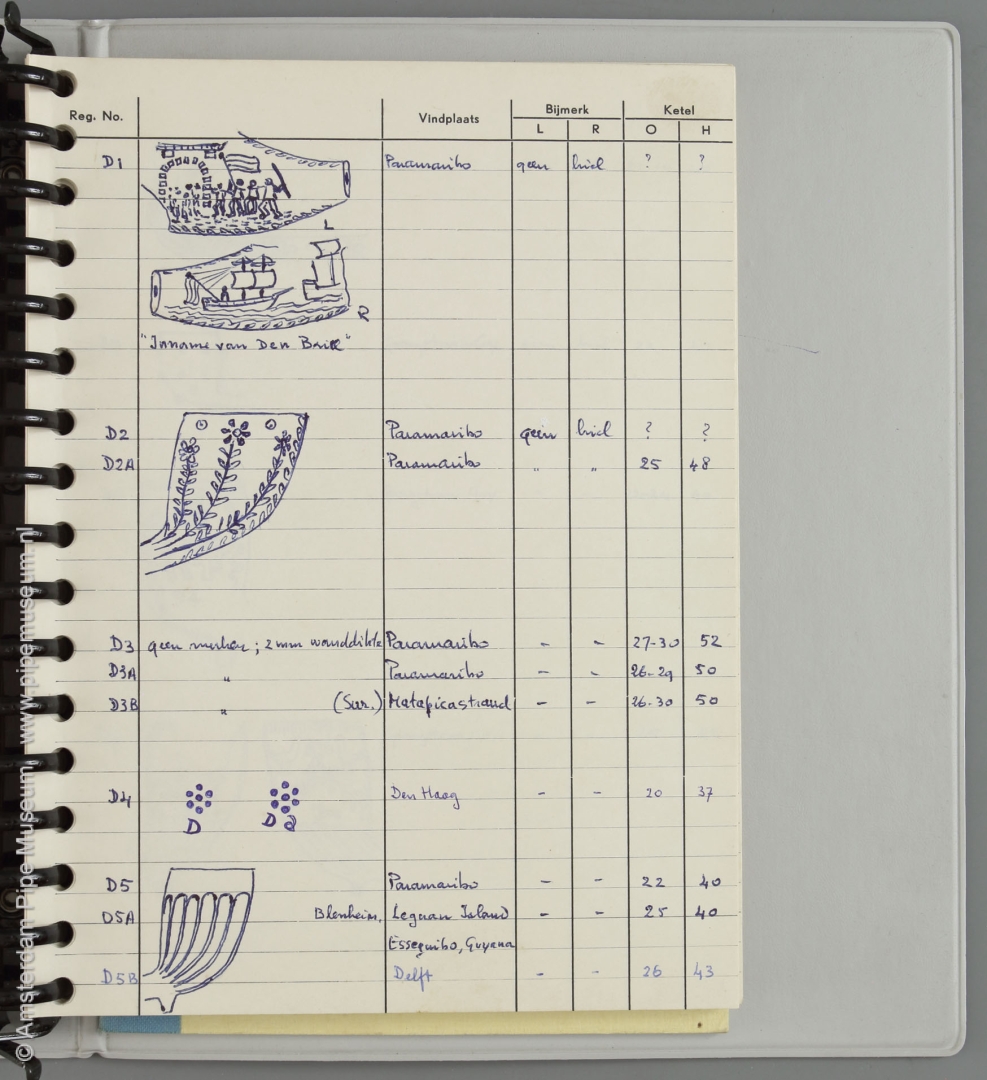 Reg. No. Vindplaats Bijmerk Ketel
L R O H
D1 Paramaribo geen hiel ? ?
L
R
"Inname van Den Briel"
D2 Paramaribo geen hiel ? ?
D2A Paramaribo " " 25 48
D3 geen merken ; 2 mm wanddikte Paramaribo - - 27-30 52
D3A " Paramaribo - - 26-29 50
D3B " (Sur.) Matapicastrand - - 26-30 50
D4 Den Haag - - 20 37
D D
D5 Paramaribo - - 22 40
D5A Blenheim, Leguan Island - - 25 40
Essequibo, Guyana
D5B Delft - - 26 43
© Amsterdam Pipe Museum www.pipemuseum.nl